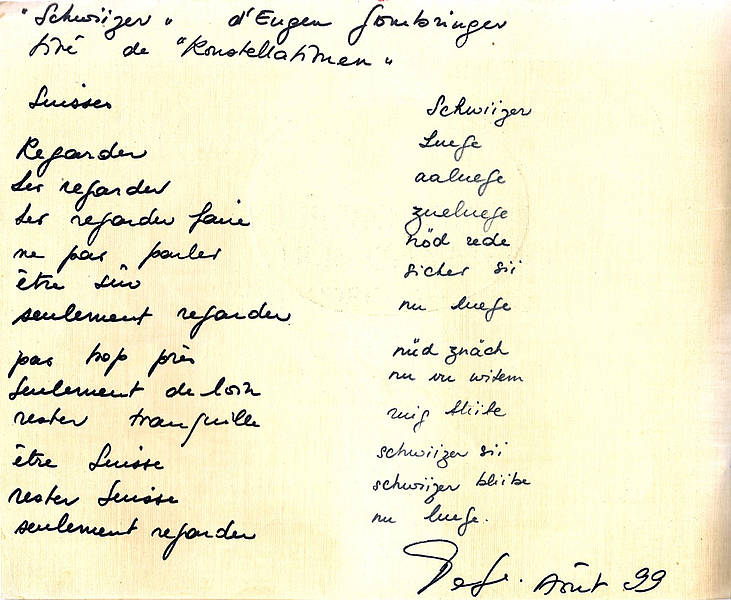 "Schwiizer" d'Eugen Gombringer
tiré de "Konstellationen"
Suisses
Regarder
les regarder
les regarder faire
ne pas parler
être sûr
seulement regarder
pas trop près
seulement de loin
rester tranquille
être Suisse
rester Suisse
seulement regarder
Schwiizer
Luege
aaluege
zueluege
nöd rede
sicher sii
nu luege
nüd znäch
nu vu witem
ruig bliibe
schwiizer sii
schwiizer bliibe
nu luege.
Août 99